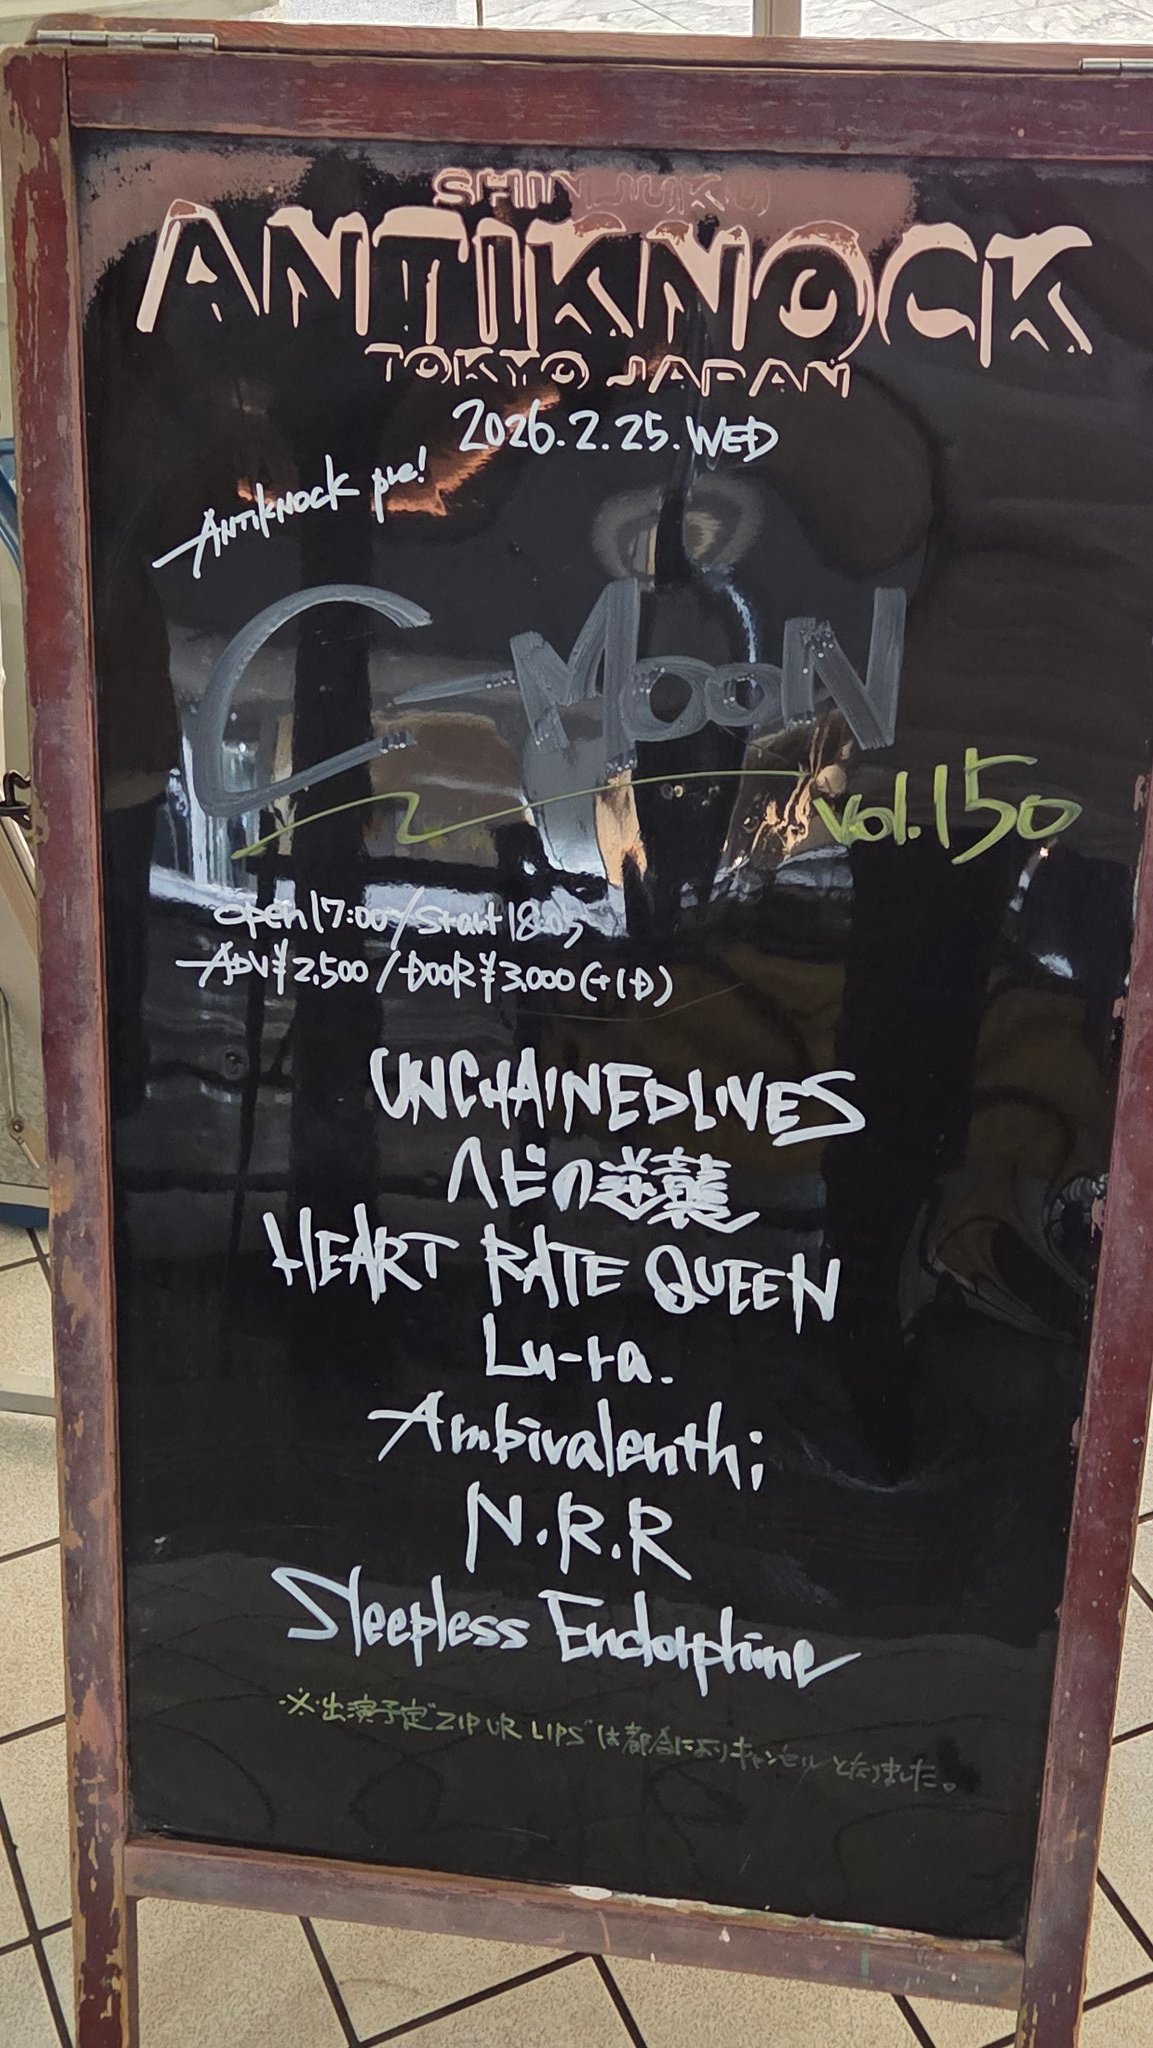 SHINJUKU
ANTIKNOCK
TOKYO JAPAN
2026.2.25.WED
ANTIKNOCK pre!
C-MOON
vol.150
open17:00/Start18:05
ADV¥2,500/DOOR¥3,000(+1D)
UNCHAINEDLIVES
ヘビの逆襲
HEART RATE QUEEN
Lu-ra.
Ambivalenth;
N.R.R
Sleepless Endorphine
※出演予定"ZIP UR LIPS"は都合によりキャンセルとなりました。